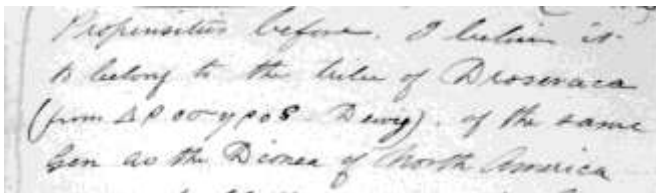 Propensities before. I believe it
to belong to the tribe of Droseraca
(from ΔΡοσγροs Dewy). of the same
Gen as the Dionea of North America